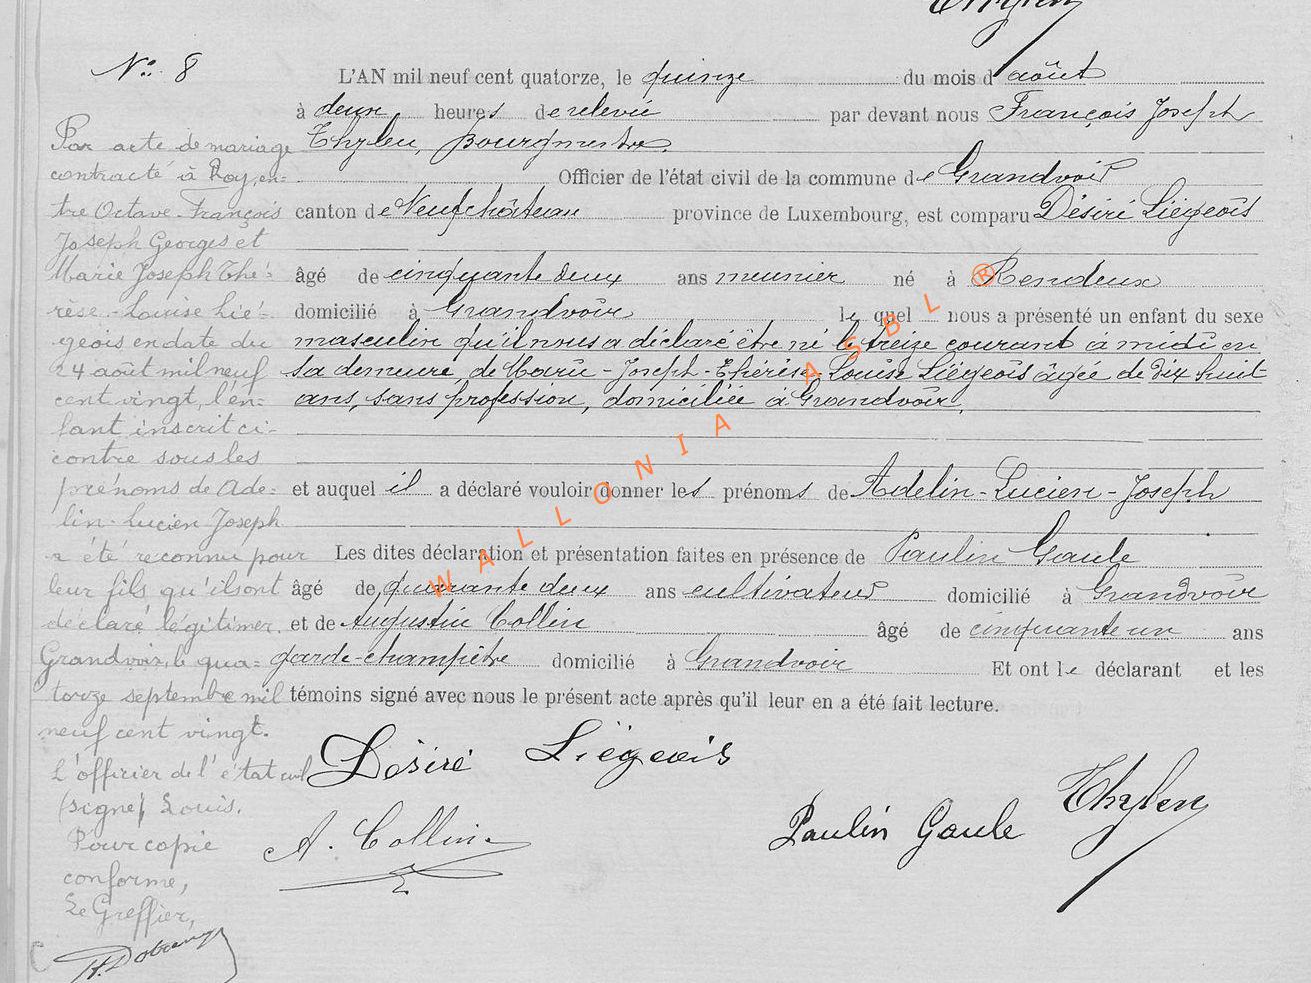 Nº 8
L'AN mil neuf cent quatorze, le quinze du mois d'août
à deux heures de relevée par devant nous François Joseph
Thylen, Bourgmestre,
Officier de l'état civil de la commune de Grandvoir
canton de Neufchâteau province de Luxembourg, est comparu Désiré Liégeois
âgé de cinquante deux ans meunier né à Rendeux
domicilié à Grandvoir le quel nous a présenté un enfant du sexe
masculin qu'il nous a déclaré être né le treize courant à midi en
sa demeure, de Marie-Joseph-Thérèse-Louise Liégeois âgée de dix huit
ans, sans profession, domiciliée à Grandvoir,
et auquel il a déclaré vouloir donner les prénoms de Adelin-Lucien-Joseph
Les dites déclaration et présentation faites en présence de Paulin Gaule
âgé de quarante deux ans cultivateur domicilié à Grandvoir
et de Augustin Collin âgé de cinquante un ans
garde-champêtre domicilié à Grandvoir Et ont le déclarant et les
témoins signé avec nous le présent acte après qu'il leur en a été fait lecture.
Désiré Liégeois
A. Collin
Paulin Gaule
Thylen
Par acte de mariage
contracté à Roy, en-
tre Octave-François
Joseph Georges et
Marie Joseph Thé-
rèse-Louise Lié-
geois en date du
24 août mil neuf
cent vingt, l'en-
fant inscrit ci-
contre sous les
prénoms de Ade-
lin-Lucien Joseph
a été reconnu pour
leur fils qu'ils ont
déclaré légitimer.
Grandvoir, le qua-
torze septembre mil
neuf cent vingt.
L'officier de l'état civil
(signé) Louis.
Pour copie
conforme,
Le Greffier,
WALLONIA ASBL ®